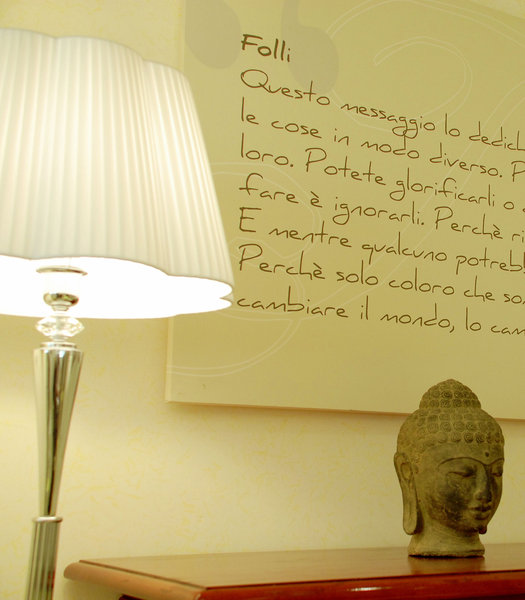 Folli
Questo messaggio lo dedich
le cose in modo diverso. P
loro. Potete glorificarli o
fare è ignorarli. Perchè ri
E mentre qualcuno potrebb
Perchè solo coloro che so
cambiare il mondo, lo cam